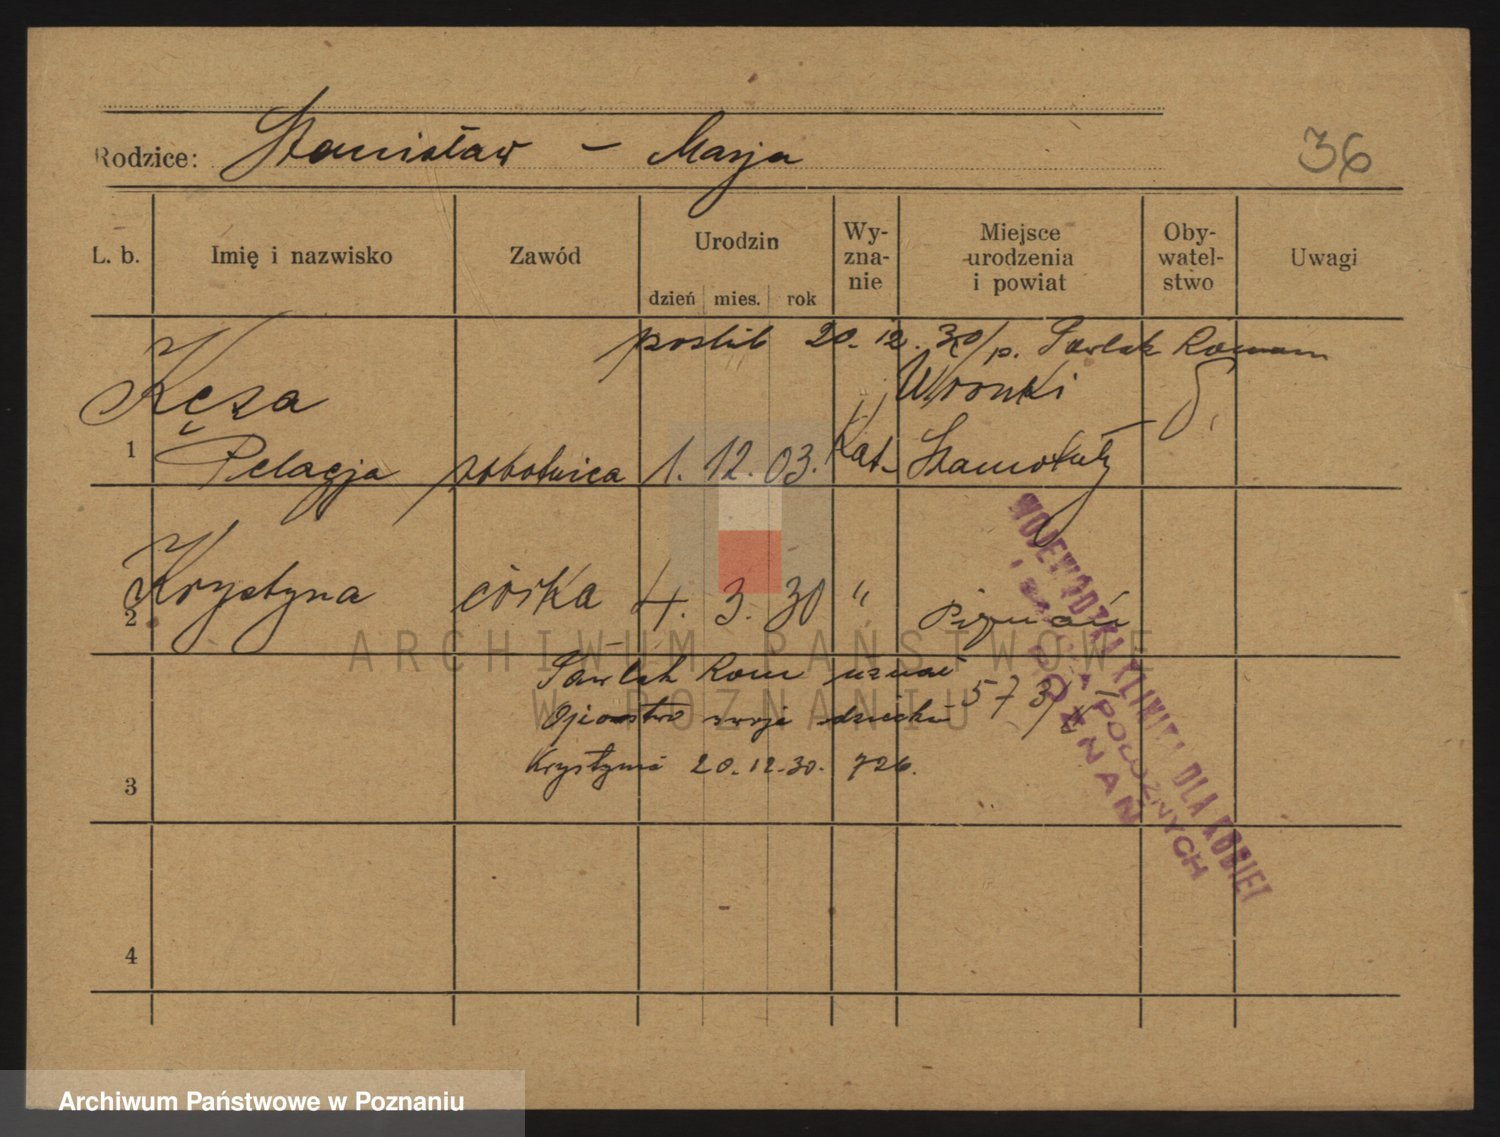 36
Rodzice: Stanisław – Marja
L. b. Imię i nazwisko Zawód Urodzin dzień mies. rok Wy-zna-nie Miejsce urodzenia i powiat Oby-watel-stwo Uwagi
poślub 20. 12. 30 / p. Pawlak Roman
Kęsa Wronki
1 Pelagja robotnica 1. 12. 03. Kat. Szamotuły
2 Krystyna córka 4. 3. 30 " Poznań
Pawlak Rom uznał
Ojcostwo swoje dziecku 573/
Krystynie 20.12.30. 726.
3
4
WOJEWÓDZKA KLINIKA DLA KOBIET
I POŁOŻNYCH
POZNAŃ
ARCHIWUM PAŃSTWOWE
W POZNANIU
Archiwum Państwowe w Poznaniu